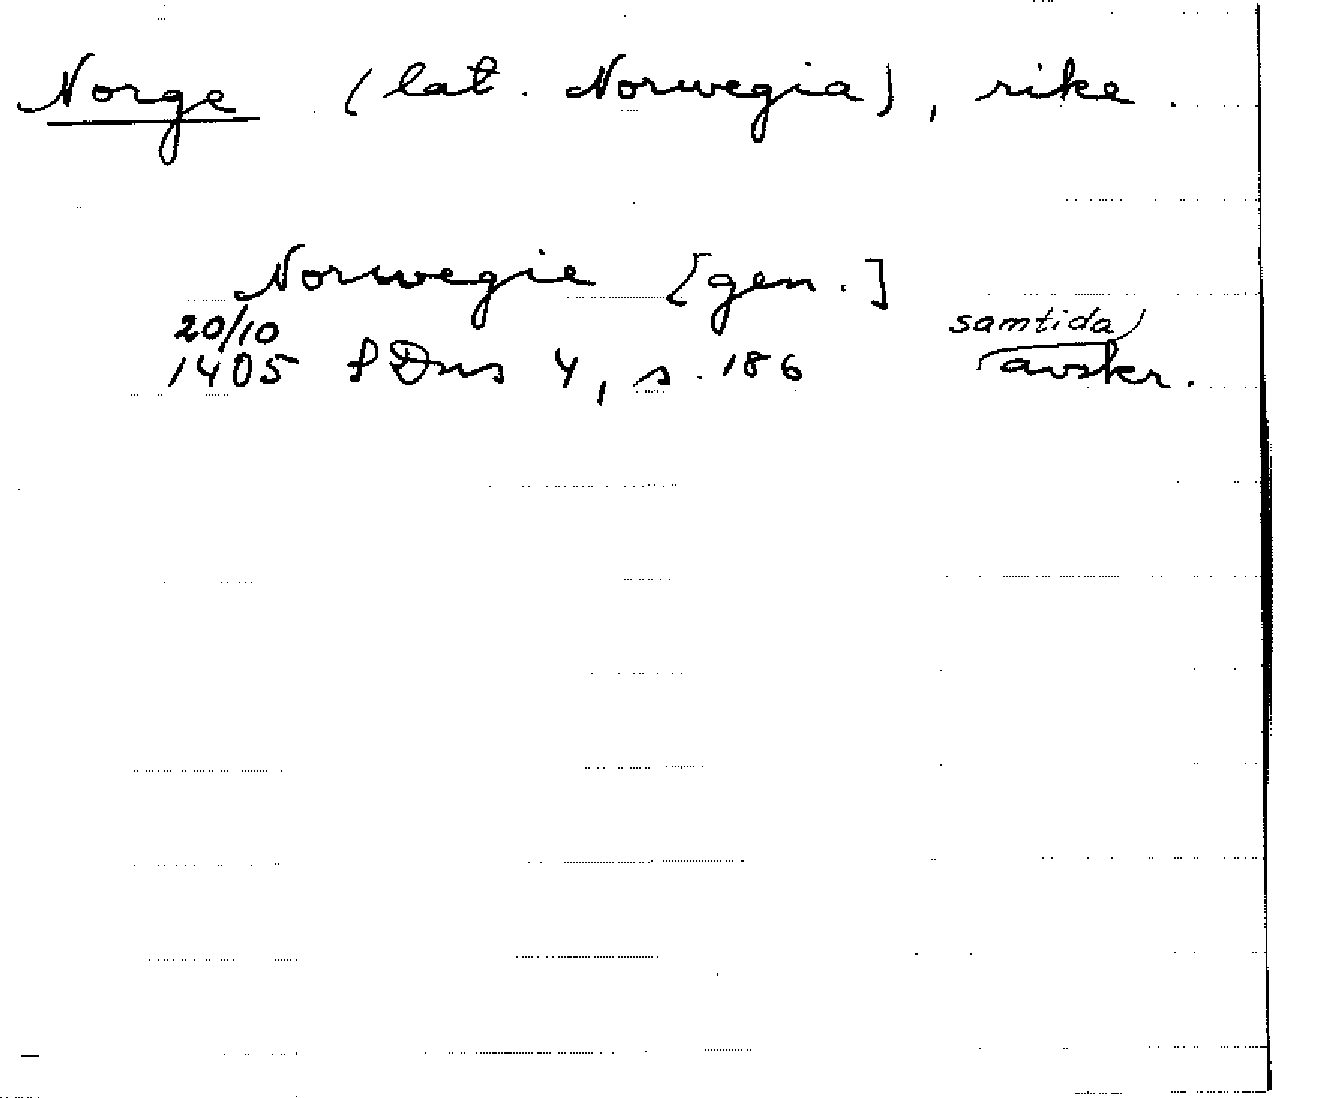 Norge (lat. Norwegia), rike.
Norwegie [gen.]
20/10 samtida
1405 SDns 4, s. 186 avskr.